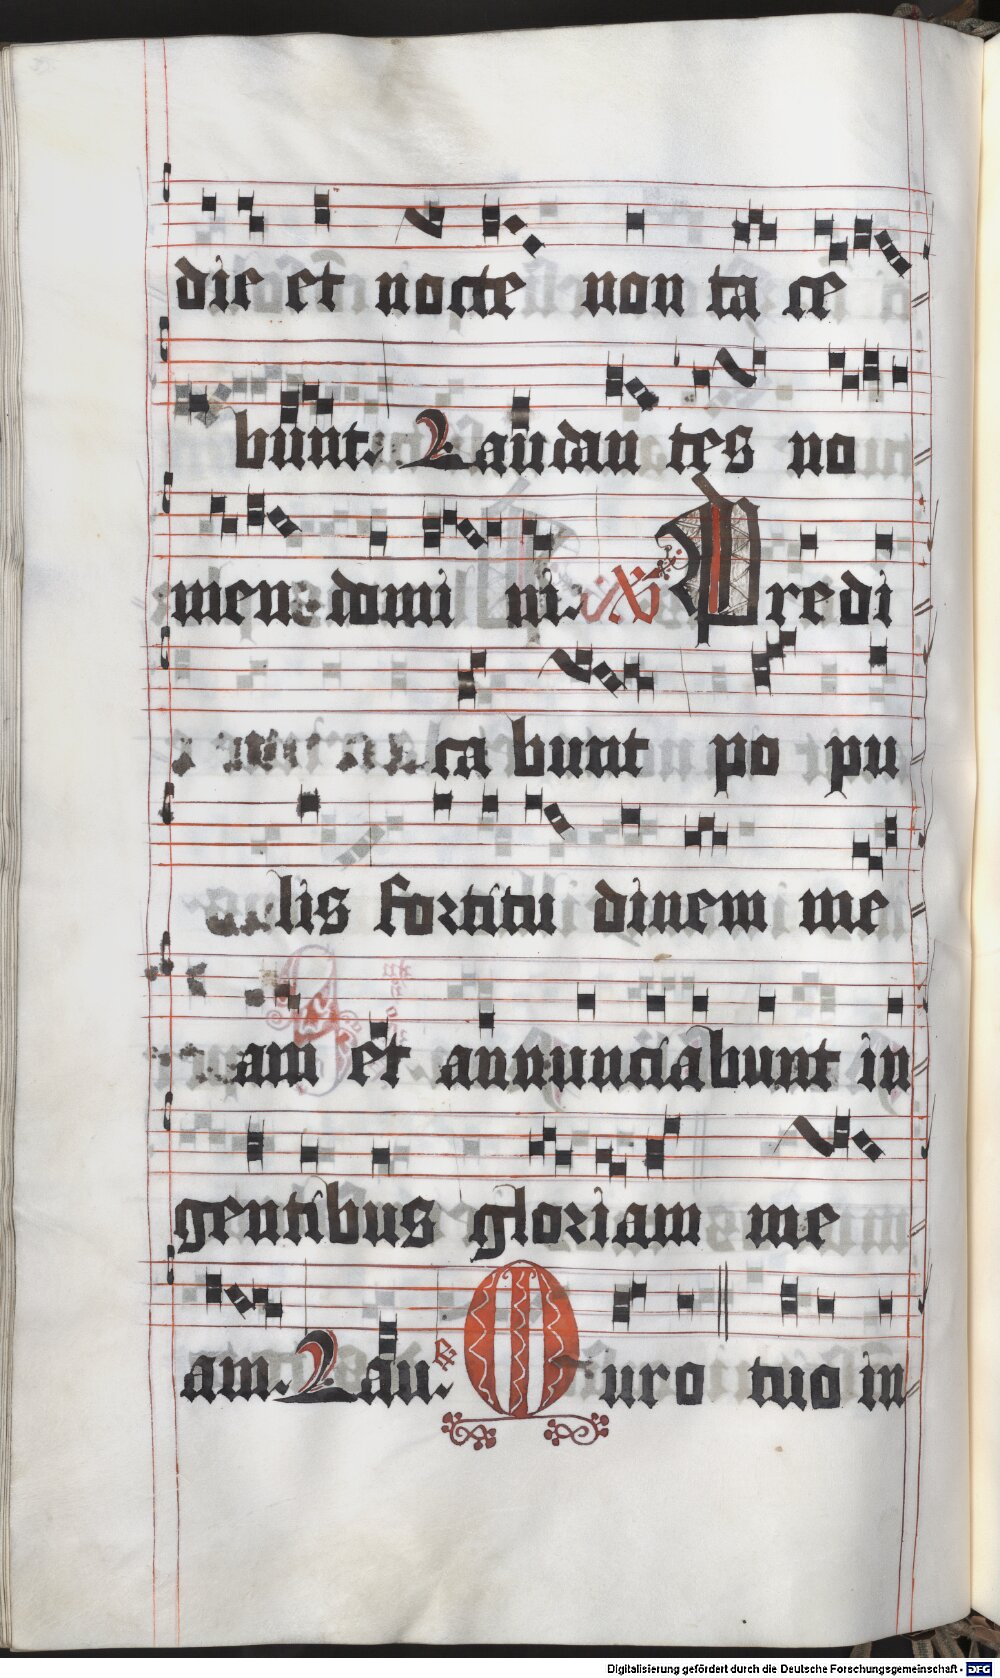 die et nocte non ta ce
bunt. Laudan tes no
men domi ni. V Predi
ca bunt po pu
lis fortitu dinem me
am et annunciabunt in
gentibus gloriam me
am. Lau. R Muro tuo in
Digitalisierung gefördert durch die Deutsche Forschungsgemeinschaft - DFG